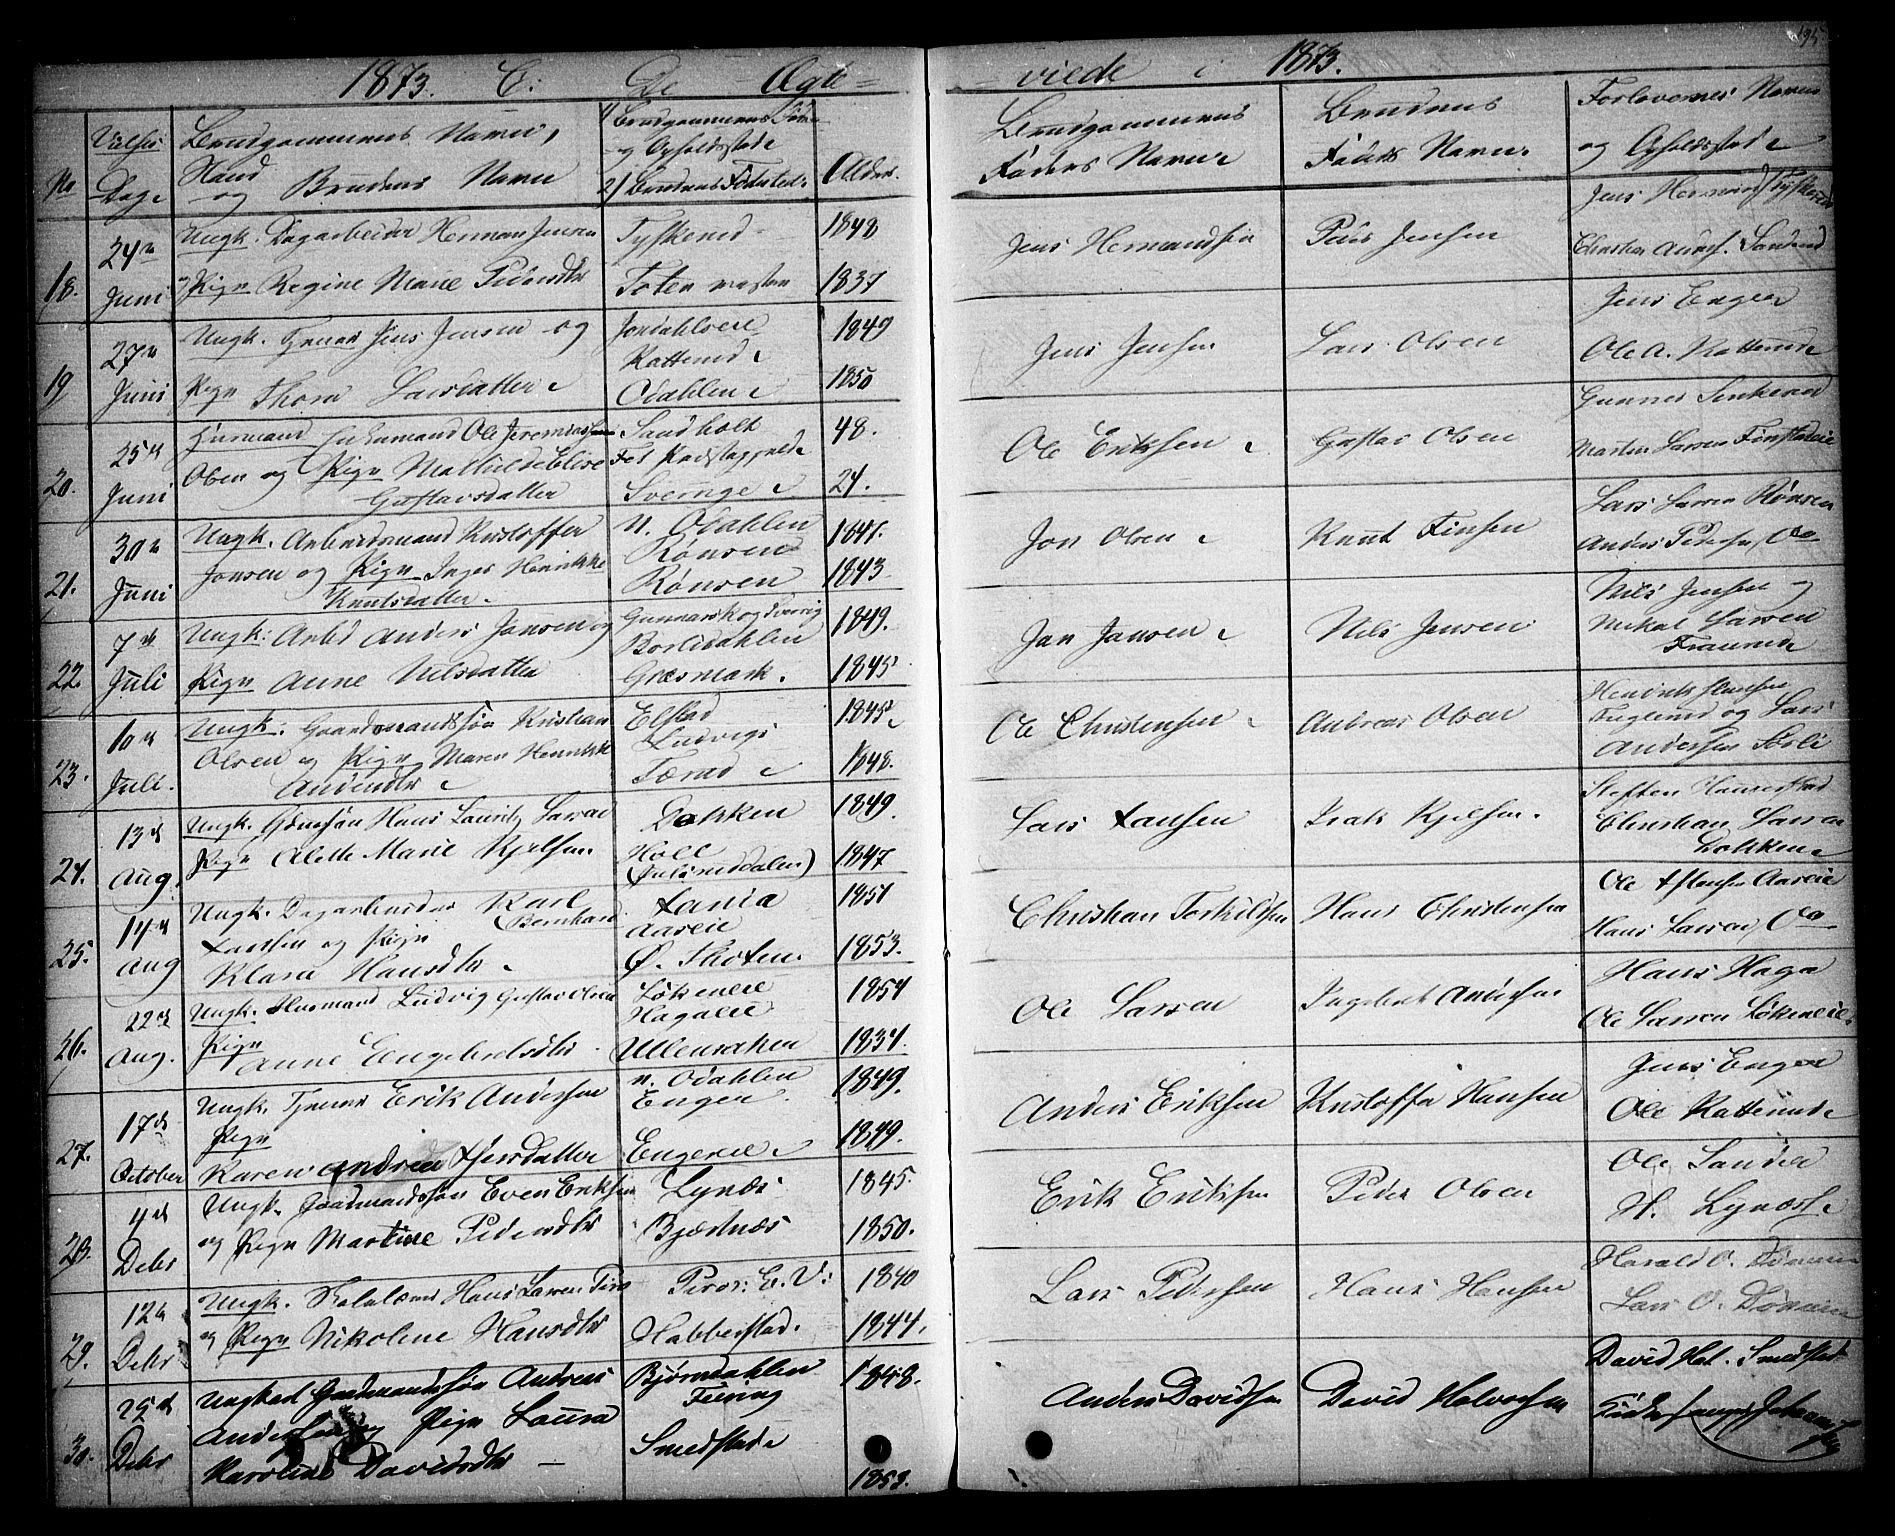 195
1873. C: De Ægte-
-viede i 1873.
No
Vielses
Dag.
Brudgommens Navn,
Stand
og Brudens Navn
1) Brudgommens Føde
og Opholdsstede
2) Brudens Fødested.
Alder.
Brudgommens
Faders Navn.
Brudens
Faders Navn.
Forlovernes Navn
og Opholdsstede
18.
24de
Juni
Ungk. Dagarbeider Herman Jensen
Pige Regine Marie Pedersdtr
Tyskerud
Toten
1848
1837
Jens Hermandsen
Peder Jensen
Jens Hermand Tyskerud
19
27de
Juni
Ungk. Tjener Jens Jensen og
Pige Thora Larsdatter
Jordahlseie
Ratterud
Odahlen
1849
1850
Jens Jensen
Lars Olsen
Jens Enger
Ole A. Ratterud
20.
25de
Juni
Ole Jeremiassen
Olsen og Pige Mathilde Elise
Gustavsdatter
Sandholt
Fet Præstegjeld
Sverrige
48.
24.
Ole Eriksen
Gustav Olsen
Gunner
Martin Larsen
21.
30te
Juni
Ungk. Arbeidsmand Kristoffer
Jonsen og Pige Inger Henrikke
Knutsdatter.
N. Odahlen
Rønsen
Rønsen
1841.
1843
Jon Olsen
Knut Finsen
Lars Larsen Rønsen
Anders Pedersen, Do
22.
7de
Juli
Ungk. Arbd Anders Jansen og
Pige Anne Nilsdatter
Gunnarskog Sverrig
Borlidahlen
Græsmark.
1849.
1845
Jan Jansen
Nils Jensen
Nils Jensen og
Mikal Larsen
23.
10de
Juli.
Ungk. Gaardmandssøn Kristian
Olsen og Pige Maren Henrikke
Andersdtr
Elstad
Ludvigs
Tærud
1845
1848.
Ole Christensen
Andreas Olsen
Henrik Hansen
Fuglerud og Lars
Andersen
24.
13de
Aug.
Ungk. Gbrussøn Hans Lauritz Larsen
Pige Alette Marie Kjelsen
Dokken
Holl
1849
1847
Lars Hansen
Isak Kjelsen.
Steffen
Christian Larsen
Dokken
25.
14de
Aug
Ungk. Dagarbeider Karl
Bernhard
og Pige
Klara Hansdtr
Aaseie
Ø. Thoten.
1851
1853.
Christian Torkildsen
Hans Christensen
Ole Hansen Aaseie
Hans Larsen, Do
26.
22de
Aug.
Ungk. Husmand Ludvig Gustav Olsen
Pige
Anne Engebretsdtr
Løkeneie
Hagaeie
Ullensaker
1854
1834.
Ole Larsen
Ingebret Andersen
Hans Haga
Ole Larsen Løkeneie.
27.
17de
October
Ungk. Tjener Erik Andersen
Pige
Karen Andrea
N. Odahlen
Enger.
Engereie
1849.
1849.
Anders Eriksen
Kristoffer Hansen
Jens Enger
Ole Ratterud
28.
4de
Debr
Ungk. Gaardmandssøn Even Eriksen
og Pige Martine Pedersdtr
Lynæs
Bjæstnæs
1845.
1850.
Erik Eriksen
Peder Olsen
Ole Sander
H. Lynæs
29.
12te
Debr
Ungk. Skolelærer Hans Larsen
og Pige Nikoline Hansdtr
Habberstad.
1840
1844.
Lars Pedersen
Hans Hansen
Harald O. Dønnum
Lars O. Dønnum
30.
25de
Debr
Ungkarl Gaardmandssøn Andreas
Andersen og Pige Laura
Karoline Davidsdtr
Bjørndahlen
Smedstad
1848.
1853.
Anders Davidsen
David Halvorsen
David Hal. Smedstad